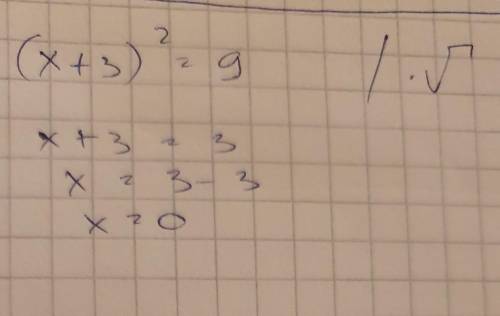 (x+3)² = 9 / · √
x + 3 = 3
x = 3 - 3
x = 0